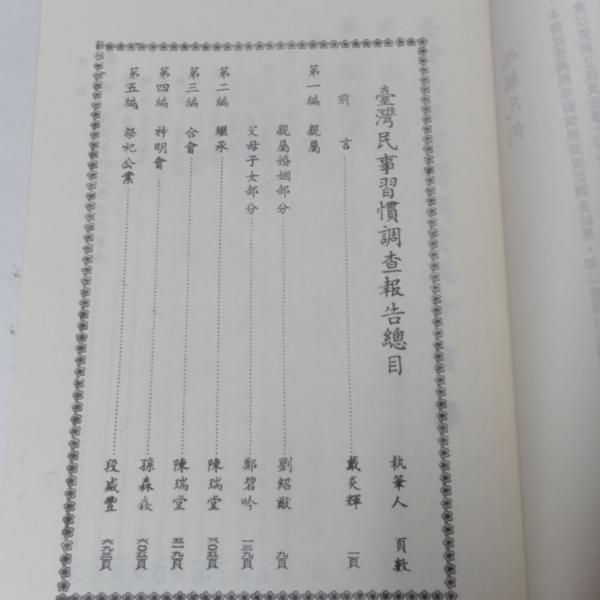 臺灣民事習慣調查報告總目
執筆人 頁數
前言 戴炎輝 一頁
第一編 親屬
親屬婚姻部分 劉紹猷 九頁
父母子女部分 鄭碧吟 一三九頁
第二編 繼承 陳瑞堂 三〇五頁
第三編 合會 陳瑞堂 五一九頁
第四編 神明會 孫森焱 六〇五頁
第五編 祭祀公業 段盛豐 六九三頁